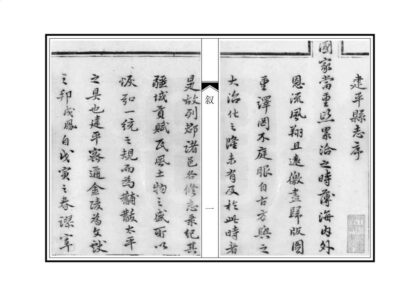 建平縣志序
國家當重熙累洽之時薄海內外
恩流風翔且遠徼盡歸版圖
重澤罔不庭服自古方輿之
大治化之隆未有及於此時者
敘
一
是故列郡諸邑各修志乘紀其
疆域貢賦及風土物之盛所以
恢弘一統之規而為黼黻太平
之具也建平密通金陵為文獻
之邦戊鳳自戊寅之春謬宰